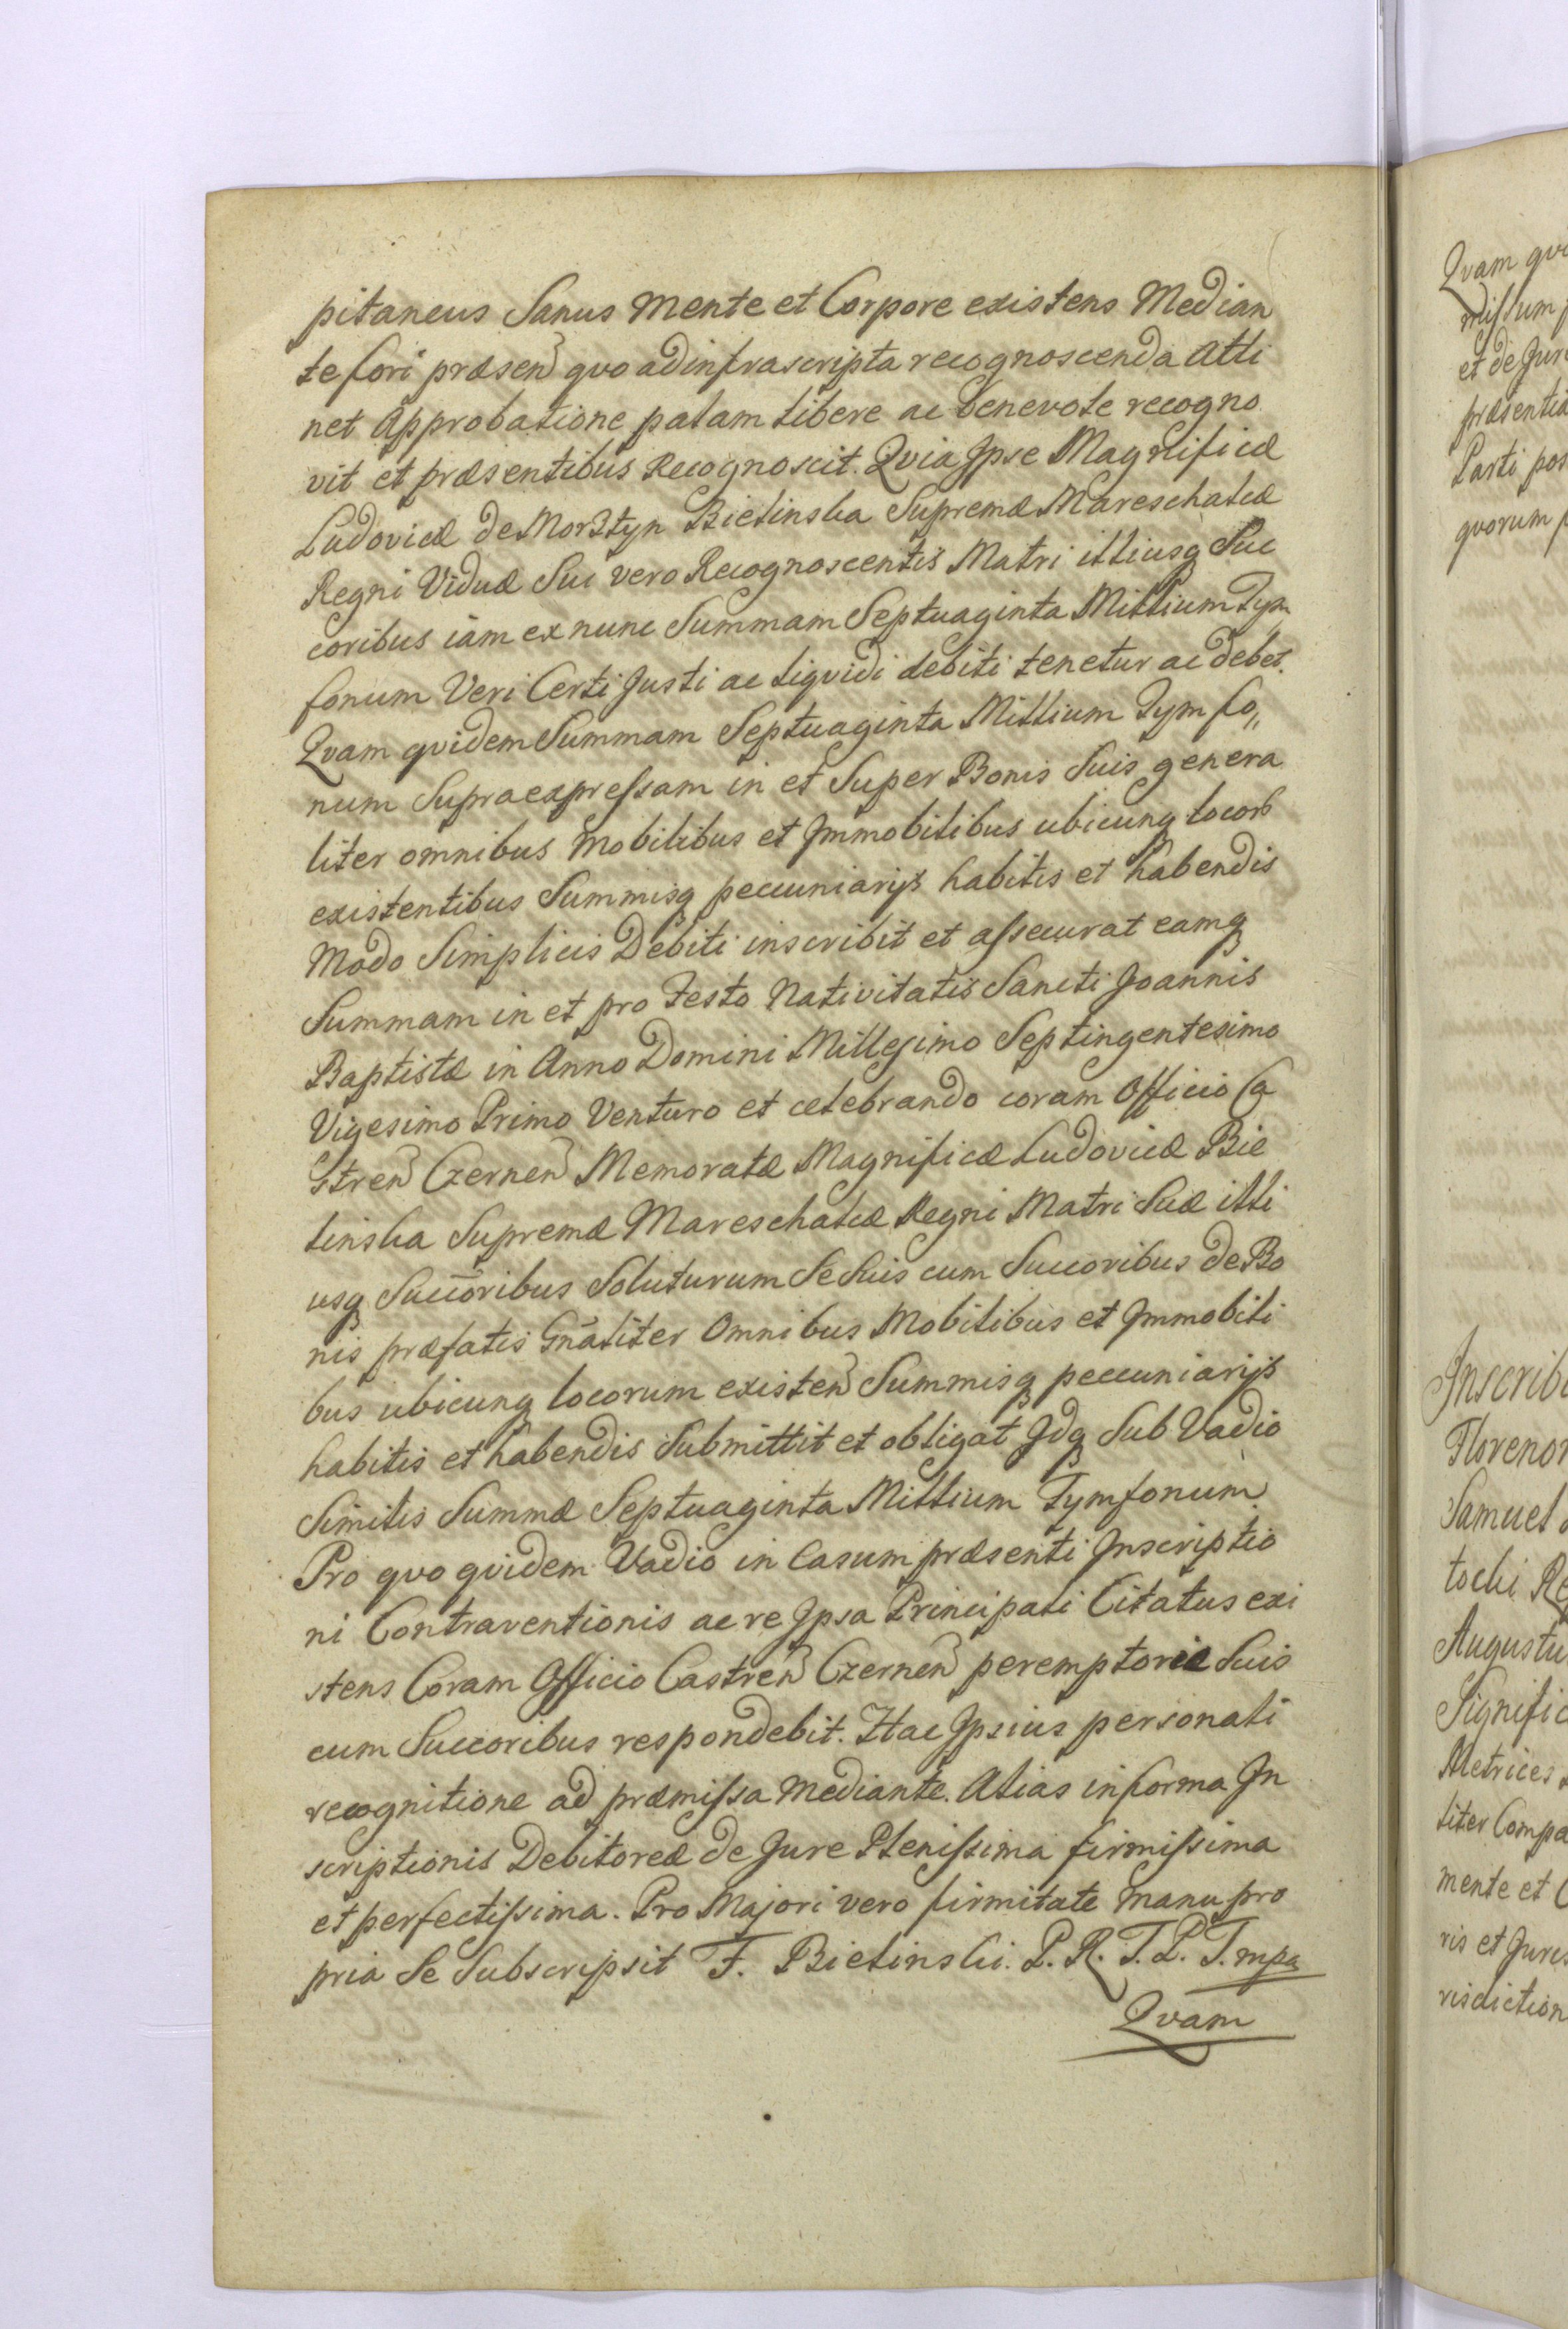 pitaneus Sanus Mente et Corpore existens Median
te fori præsen quo ad infrascripta recognoscenda Atti
net Approbatione palam libere ac benevole recogno
vit et præsentibus Recognoscit. Qvia Jpse Magnificæ
Ludovicæ de Morsztyn Bielinska Supremæ Mareschalcæ
Regni Viduæ Sui vero Recognoscentis Matri illiusq Suc
coribus iam ex nunc Summam Septuaginta Millium Tym
fonum Veri Certi Justi ac liqvidi debiti tenetur ac debet.
Qvam qvidem Summam Septuaginta Millium Tymfo„
num Supraexpressam in et Super Bonis Suis genera
liter omnibus Mobilibus et Jmmobilibus ubicunq locorb
existentibus Summisq pecuniarijs habitis et habendis
Modo Simplicis Debiti inscribit et assecurat eamq
Summam in et pro Festo Nativitatis Sancti Joannis
Baptistæ in Anno Domini Millesimo Septingentesimo
Vigesimo Primo Venturo et celebrando coram Officio Ca
stren Czernen Memoratæ Magnificæ Ludovicæ Bie
linska Supremæ Mareschalcæ Regni Matri Suæ illi
usq Succoribus Soluturum Se Suis cum Succoribus de Bo
nis præfatis Gnaliter Omnibus Mobilibus et Jmmobili
bus ubicunq locorum existen Summisq pecuniarijs
habitis et habendis Submittit et obligat Jdq Sub Vadio
Similis Summæ Septuaginta Millium Tymfonum
Pro qvo qvidem Vadio in Casum præsenti Jnscriptio
ni Contraventionis ac re Jpsa Principali Citatus exi
stens Coram Officio Castren Czernen peremptorie Suis
cum Succoribus respondebit. Hac Jpsius personali
recognitione ad præmissa Mediante. Alias in forma Jn
scriptionis Debitoreæ de Jure Plenissima firmissima
et perfectissima. Pro Majori vero firmitate manu pro
pria Se Subscripsit F. Bielinski. P. R. T. P. T. mpa
Qvam
Qvam qvi
missum
et de Jure
præsentia
Parti pos
qvorum
Jnscrib
Florenor
Samuel
tocki Re
Augustu
Signific
Metrices
liter Compa
mente et C
ris et Juris
risdiction